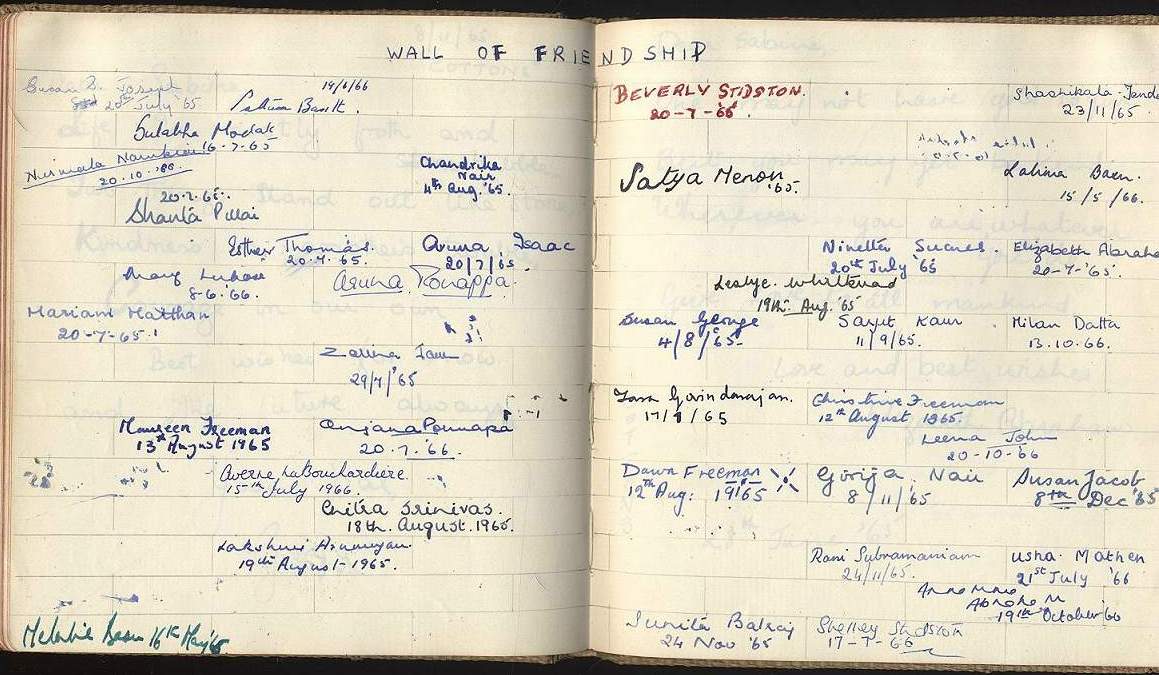 WALL OF FRIENDSHIP
Susan
20th July '65
14/6/66
Sulabha Modak
16.7.65
Nirmala
20.10.
Chandrika
Nair
4th Aug. '65.
20.7.65.
Shanta Pillai
Esther Thomas.
20.7.65.
Aruna Isaac
20/7/65.
Aruna Ponappa.
Mary
8-6.'66.
Mariam Matthan
20-7-65.
Zarina
29/7/'65
Maureen Freeman
13th August 1965
Anjana Ponnapa
20.7.'66.
Averne LaBouchardiere
15th July 1966.
Chitra Srinivas.
18th. August. 1965.
Lakshmi
19th August-1965.
16th May '65
BEVERLY STIDSTON.
20-7-'66.
Shashikala
23/11/65.
Satya Menon
'65.
15/5/66.
Ninette
20th July '65
Elizabeth Abraha
20-7-'65.
Leslye. Whitehead
19th. Aug. '65
Susan George
4/8/65.
Sarjit Kaur
11/9/65.
Milan Datta
13.10.66.
Tara Govindarajan.
17/8/65
Christine Freeman
12th August 1965.
Leena John
20-10-66
Dawn Freeman
12th Aug: 1965
Girija Nair
8/11/65
Susan Jacob
8th Dec '65
Rani Subramaniam
24/11/65.
Usha. Mathen
21st July '66
19th October '66
Sunita Balraj
24 Nov '65
Shelley Stidston
17-7-66